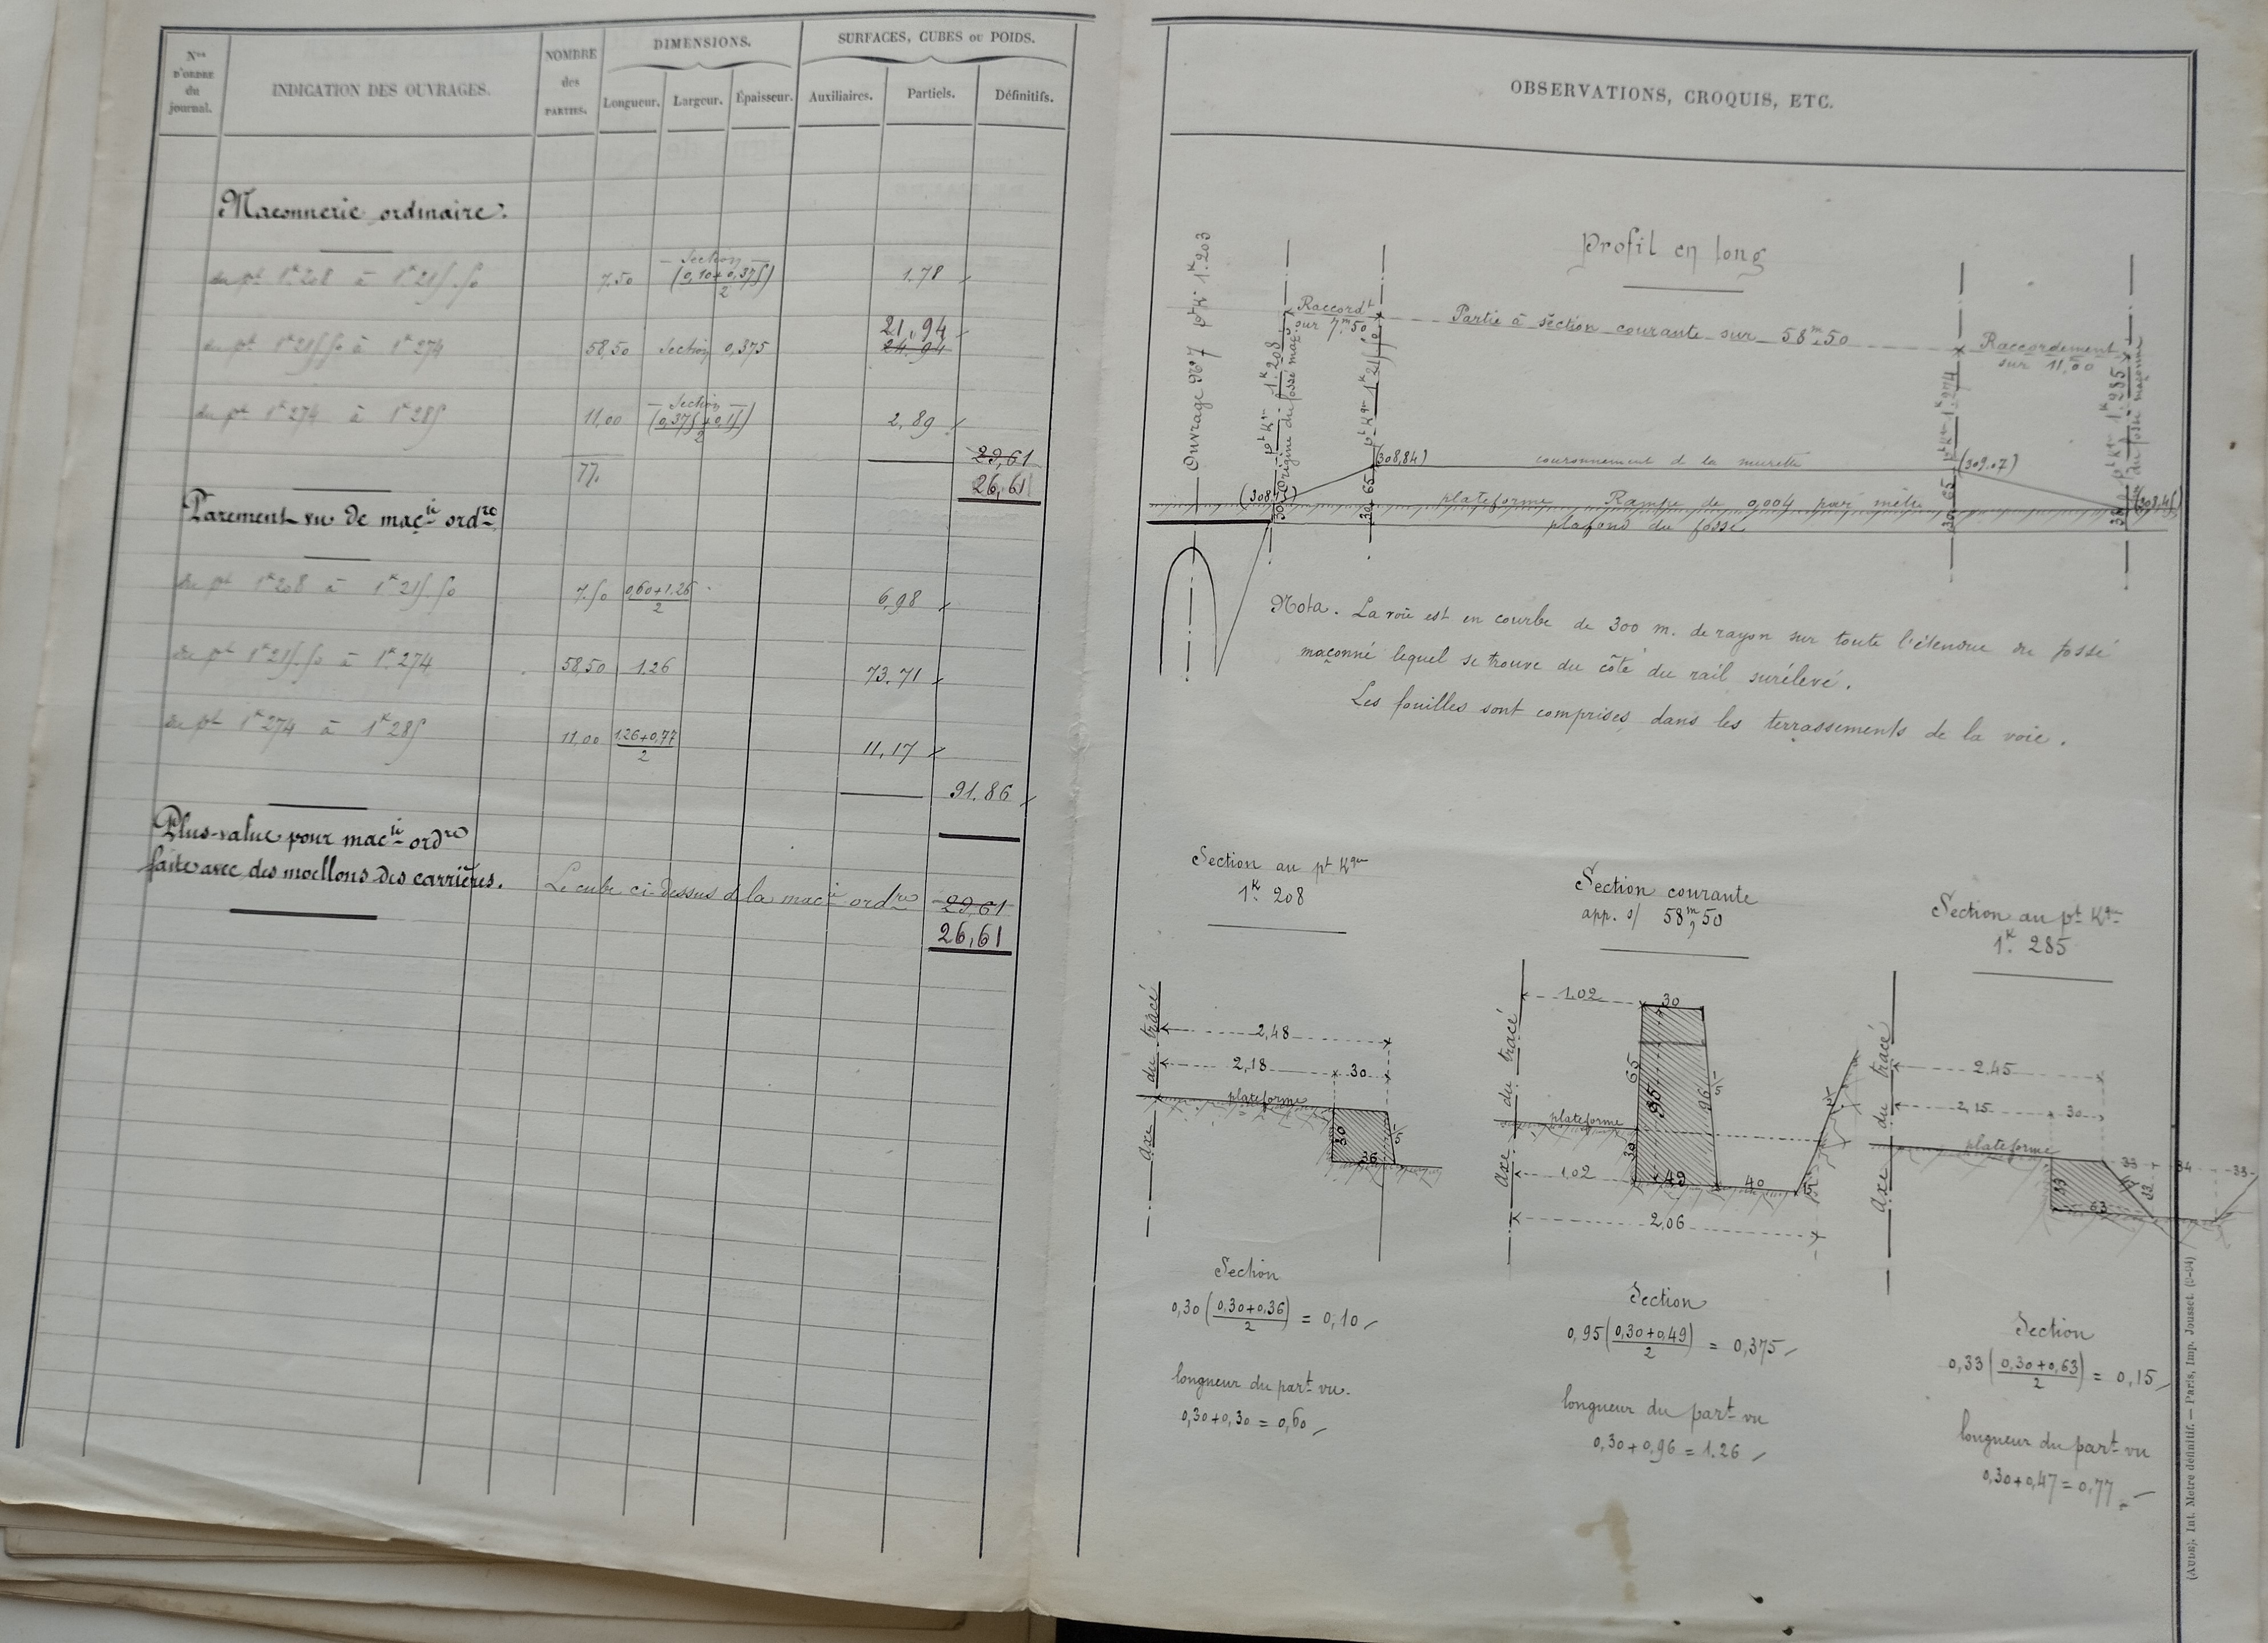 Nos D'ORDRE du journal.
INDICATION DES OUVRAGES.
NOMBRE des PARTIES.
DIMENSIONS.
Longueur. Largeur. Épaisseur.
SURFACES, CUBES OU POIDS.
Auxiliaires. Partiels. Définitifs.
Maçonnerie ordinaire:
du pt 1k 208 à 1k 215.50 7.50 Section (0,10+0,375)/2 1.78
21,94
du pt 1k 215.50 à 1k 274 58,50 Section 0,375 24.94
du pt 1k 274 à 1k 285 11,00 Section (0,375+0,15)/2 2,89
29,61
77. 26,61
Parement vu de macie ordre
du pt 1k 208 à 1k 215.50 7.50 0,60+1.26/2 6,98
du pt 1k 215.50 à 1k 274 58,50 1.26 73.71
du pt 1k 274 à 1k 285 11,00 1.26+0,77/2 11,17
91.86
Plus-value pour macie ordre
faite avec des moellons des carrières.
Le cube ci-dessus de la macie ordre 29,61
26,61
OBSERVATIONS, CROQUIS, ETC.
Profil en long
Ouvrage No 7 pt K. 1k.203
Raccordt sur 7m50
Partie à section courante sur 58m50
Raccordement sur 11,00
pt Kque 1k 208
origine du fossé maçonné
pt Kque 1k 215,50
pt Kque 1k 274
pt Kque 1k 285
du fossé maçonné
(308,84) couronnement de la murette (309.07)
65 65
plateforme Rampe de 0,004 par mètre
(308,45)
30 30 30
plafond du fossé
Nota. La voie est en courbe de 300 m. de rayon sur toute l'étendue du fossé
maçonné lequel se trouve du côté du rail surélevé.
Les fouilles sont comprises dans les terrassements de la voie.
Section au pt Kque
1k. 208
Axe du tracé
2,48
2,18 30
plateforme
30
36
1/5
Section
0,30 (0,30+0,36/2) = 0,10
longueur du part vu.
0,30+0,30 = 0,60
Section courante
app. s/ 58m,50
Axe du tracé
1.02 30
65 95 96 1/5
plateforme
30
1.02 49 40
2,06
Section
0,95 (0,30+0,49/2) = 0,375
longueur du part vu
0,30+0,96 = 1.26
Section au pt Kque
1k. 285
Axe du tracé
2.45
2,15 30
plateforme
33 34 33
33
63
Section
0,33 (0,30+0,63/2) = 0,15
longueur du part vu
0,30+0,47 = 0,77
(AUDE). Int. Métré définitif. — Paris, Imp. Jousset. (9-04)